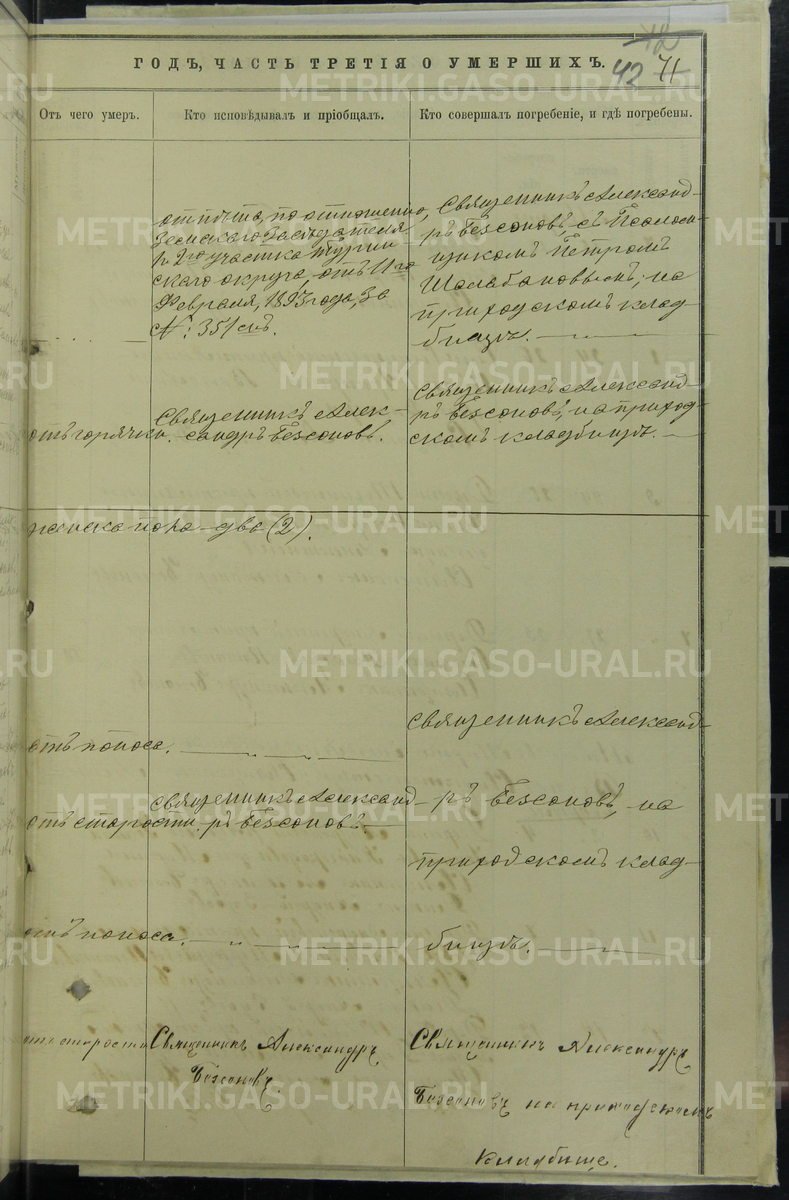 ГОДЪ, ЧАСТЬ ТРЕТІЯ О УМЕРШИХЪ.
42
42 71
Отъ чего умеръ.
Кто исповѣдывалъ и пріобщалъ.
Кто совершалъ погребеніе, и гдѣ погребены.
отпѣта, по отношенію
Земскаго Засѣдателя
2го участка Турин-
скаго округа, отъ 11го
Февраля, 1893 года, за
№: 351
Священникъ Александ-
ръ Безсоновъ, съ Псаломщ-
икомъ Петромъ
Шалабановымъ, на
приходскомъ клад-
бищѣ.
отъ горячки.
Священникъ Алек-
сандръ Безсоновъ.
Священникъ Александ-
ръ Безсоновъ, на приход-
скомъ кладбищѣ.
женска пола два (2).
отъ поноса.
Священникъ Александ-
отъ старости.
Священникъ Александ-
ръ Безсоновъ.
ръ Безсоновъ, на
приходскомъ клад-
отъ поноса.
бищѣ.
отъ старости
Священникъ Александръ
Безсоновъ.
Священникъ Александръ
Безсоновъ на приходскомъ
кладбище.
METRIKI.GASO-URAL.RU